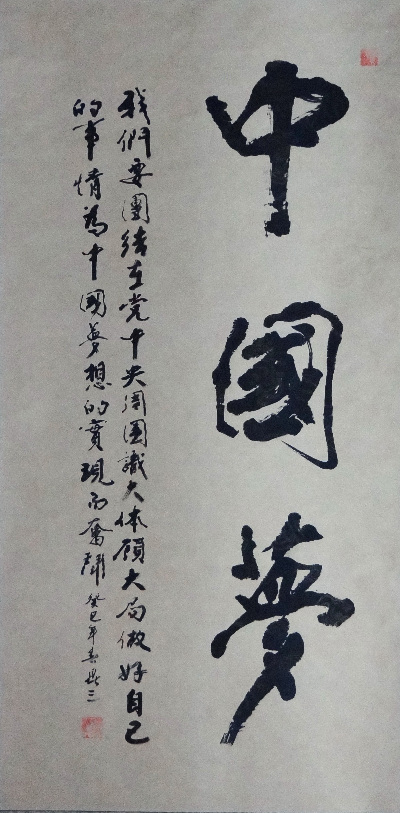 中國夢
我們要團結在党中央周圍識大体顧大局做好自己
的事情為中國夢想的實現而奮鬥
癸巳年春